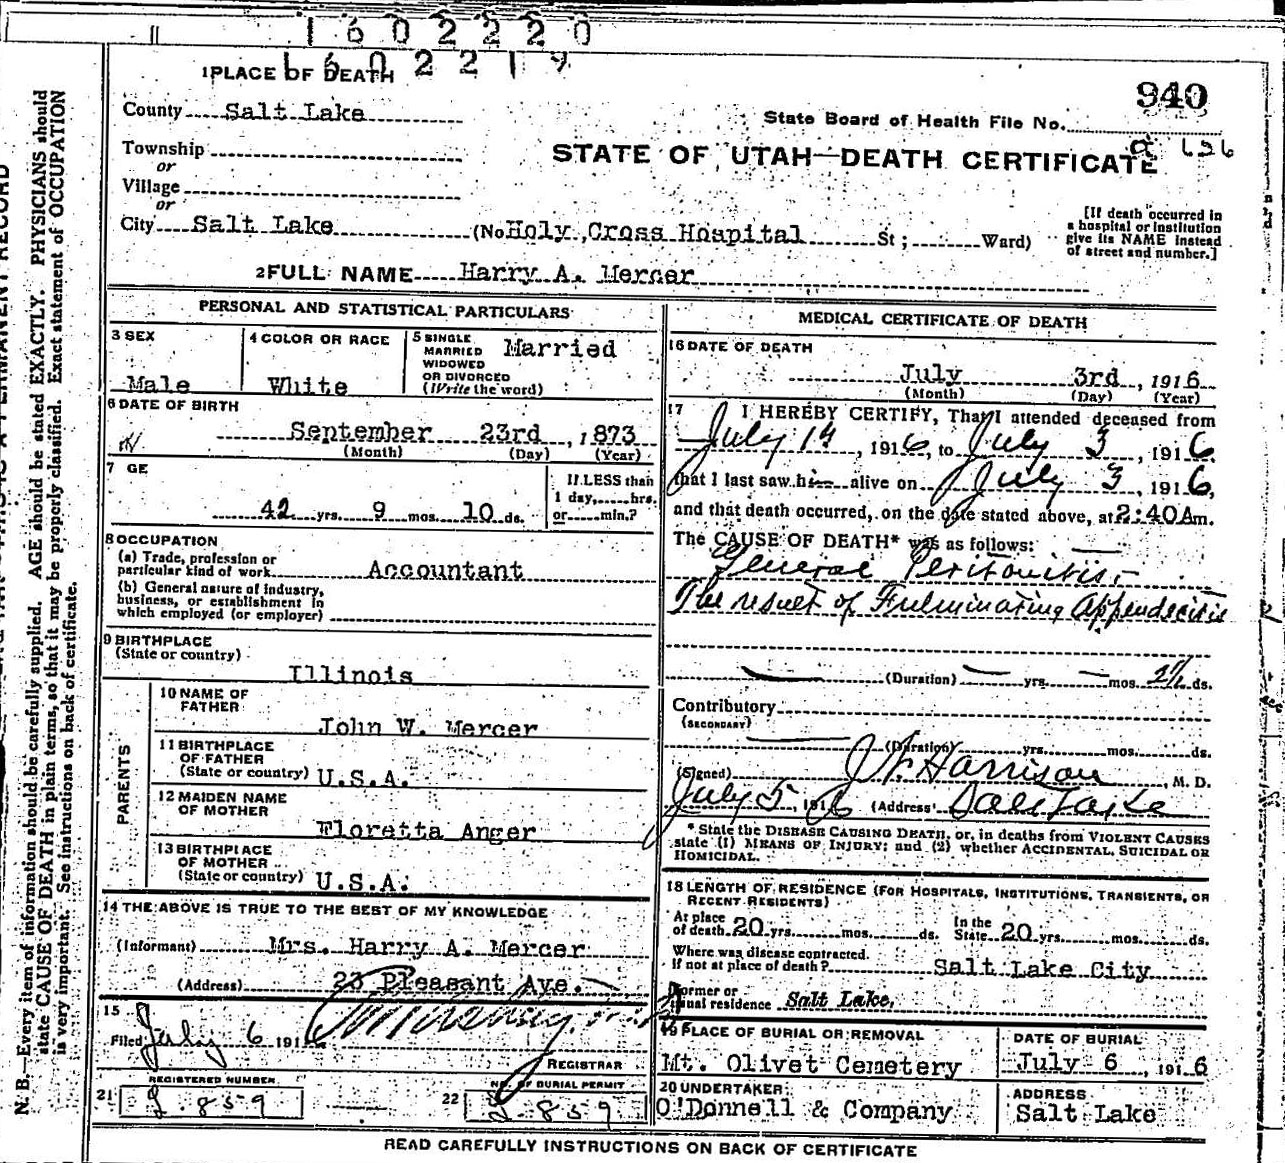 1602220
1PLACE OF DEATH
1602219
940
County Salt Lake
State Board of Health File No.
Township
or
STATE OF UTAH—DEATH CERTIFICATE
Village
or
City Salt Lake (No Holy Cross Hospital St; Ward)
[If death occurred in
a hospital or institution
give its NAME instead
of street and number.]
2FULL NAME Harry A. Mercer
PERSONAL AND STATISTICAL PARTICULARS
3 SEX
Male
4 COLOR OR RACE
White
5 SINGLE
MARRIED
WIDOWED
OR DIVORCED
(Write the word)
Married
6 DATE OF BIRTH
September 23rd, 1873
(Month) (Day) (Year)
7 GE
42 yrs. 9 mos. 10 ds.
If LESS than
1 day, hrs.
or min.?
8 OCCUPATION
(a) Trade, profession or
particular kind of work Accountant
(b) General nature of industry,
business, or establishment in
which employed (or employer)
9 BIRTHPLACE
(State or country)
Illinois
PARENTS
10 NAME OF
FATHER
John W. Mercer
11 BIRTHPLACE
OF FATHER
(State or country) U.S.A.
12 MAIDEN NAME
OF MOTHER
Floretta Anger
13 BIRTHPLACE
OF MOTHER
(State or country) U.S.A.
14 THE ABOVE IS TRUE TO THE BEST OF MY KNOWLEDGE
(Informant) Mrs. Harry A. Mercer
(Address) 23 Pleasant Ave.
15
Filed July 6 191
REGISTRAR
21 REGISTERED NUMBER
859
22 NO. OF BURIAL PERMIT
859
MEDICAL CERTIFICATE OF DEATH
16 DATE OF DEATH
July 3rd, 1916
(Month) (Day) (Year)
17 I HEREBY CERTIFY, That I attended deceased from
July 1st, 1916, to July 3, 1916,
that I last saw him alive on July 3, 1916,
and that death occurred, on the date stated above, at 2:40 Am.
The CAUSE OF DEATH* was as follows:
General Peritonitis,
The result of Fulminating Appendicitis
(Duration) yrs. mos. 2½ ds.
Contributory
(SECONDARY)
(Duration) yrs. mos. ds.
(Signed) Harrison, M. D.
July 5, 1916 (Address) Salt Lake
* State the DISEASE CAUSING DEATH, or, in deaths from VIOLENT CAUSES
state (1) MEANS OF INJURY; and (2) whether ACCIDENTAL, SUICIDAL OR
HOMICIDAL.
18 LENGTH OF RESIDENCE (FOR HOSPITALS, INSTITUTIONS, TRANSIENTS, OR
RECENT RESIDENTS)
At place
of death 20 yrs. mos. ds.
In the
State 20 yrs. mos. ds.
Where was disease contracted.
If not at place of death? Salt Lake City
Former or
usual residence Salt Lake.
19 PLACE OF BURIAL OR REMOVAL
Mt. Olivet Cemetery
DATE OF BURIAL
July 6, 1916
20 UNDERTAKER
O'Donnell & Company
ADDRESS
Salt Lake
READ CAREFULLY INSTRUCTIONS ON BACK OF CERTIFICATE
N. B.—Every item of information should be carefully supplied. AGE should be stated EXACTLY. PHYSICIANS should
state CAUSE OF DEATH in plain terms, so that it may be properly classified. Exact statement of OCCUPATION
is very important. See instructions on back of certificate.